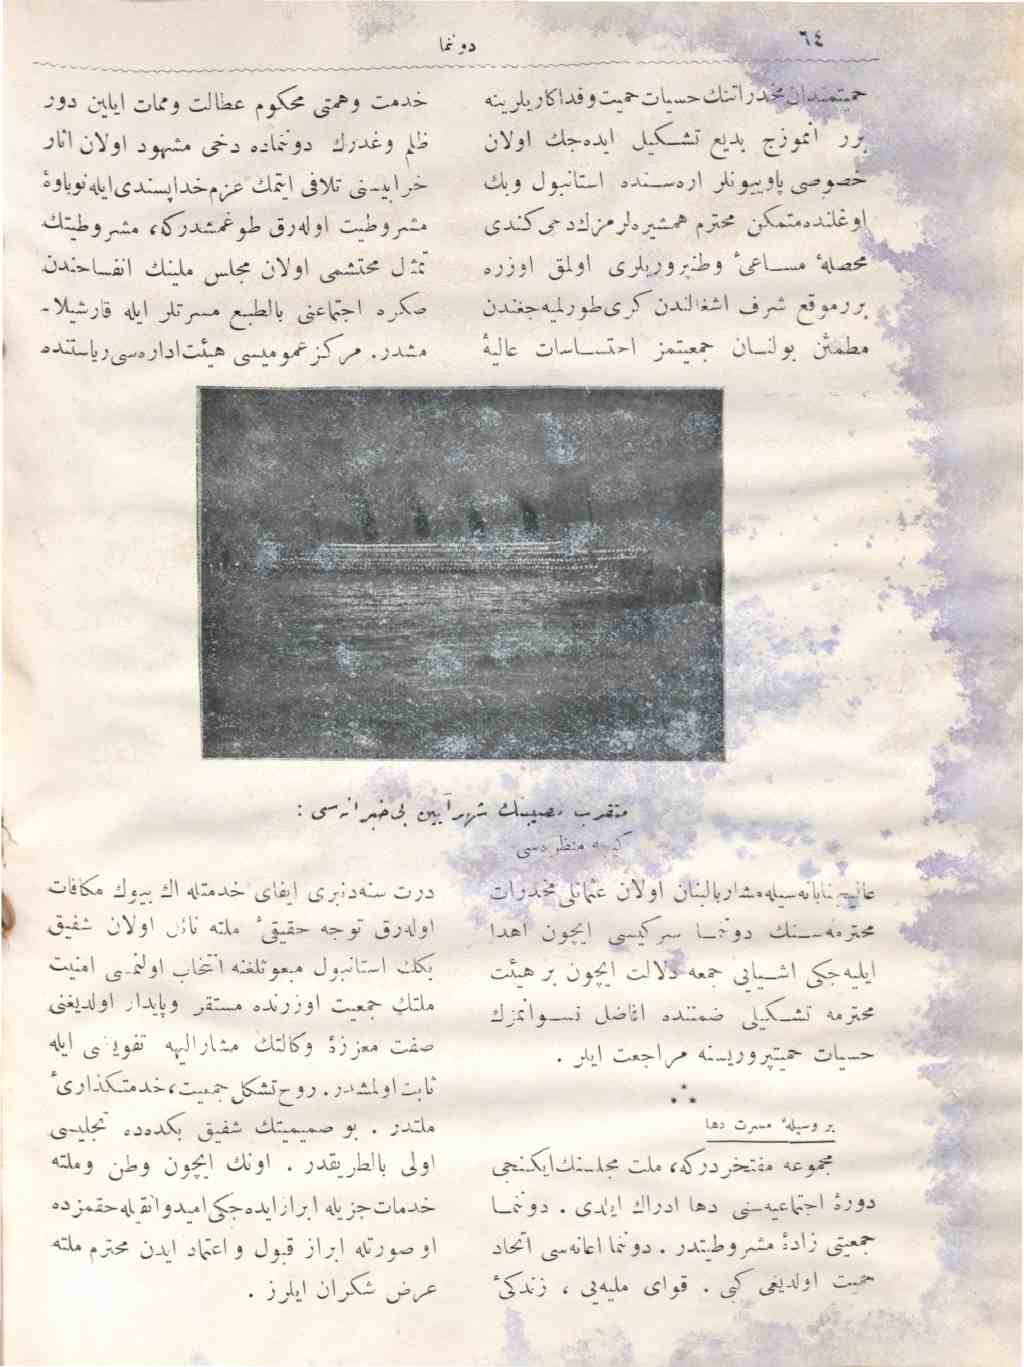 ٦٤
دوننما
حمیتمندان مخدراتنك حسیات حمیت و فداکاریلرینه
برر انموزج بدیع تشکیل ایده‌جك اولان
خصوصی پاویونلر اره‌سنده استانبول وبك
اوغلنده متمکن محترم همشیره‌لرمزك دخی کندی
محصلهٔ مساعیٔ وطنپرورلری اولمق اوزره
بررموقع شرف اشغالندن کری طورلمیه‌جغندن
مطمئن بولنان جمعیتمز احتساسات عالیهٔ
خدمت وهمتی محکوم عطالت وممات ایلین دور
ظلم وغدرك دوننماده دخی مشهود اولان اثار
خرابیسنی تلافی ایتمك عزم خداپسندی ایله نوباوهٔ
مشروطیت اوله‌رق طوغمشدرکه، مشروطیتك
تمثل محتشمی اولان مجلس ملینك انفساخندن
صکره اجتماعنی بالطبع مسرتلر ایله قارشیلا-
مشدر. مرکز عمومیسی هیئت اداره‌سی ریاستنده
متقرب مصیبتك شهرآیین بی خبرانه‌سی :
کیجه منظره‌سی
عالیجنابانه‌سیله مشاربالبنان اولان عثمانلی مخدرات
محترمه‌سنك دوننما سرکیسی ایچون اهدا
ایلیه‌جکی اشیایی جمعه دلالت ایچون بر هیئت
محترمه تشکیلی ضمننده افاضل نسوانمزك
حسیات حمیتپروریسنه مراجعت ایلر .
* * *
بر وسیلهٔ مسرت دها
مجموعه مفتخردرکه، ملت مجلسنك ایکنجی
دورهٔ اجتماعیه‌سنی دها ادراك ایلدی . دوننما
جمعیتی زادهٔ مشروطیتدر . دوننما اعانه‌سی اتحاد
حمیت اولدیغی کبی . قوای ملیه‌یی ، زندکیٔ
درت سنه‌دنبری ایفای خدمتله اك بیوك مکافات
اوله‌رق توجه حقیقیٔ ملته نائل اولان شفیق
بكك استانبول مبعوثلغنه انتخاب اولنمسی امنیت
ملتك جمعیت اوزرنده مستقر وپایدار اولدیغنی
صفت معززهٔ وکالتك مشارالیهه تفویضی ایله
ثابت اولمشدر. روح تشکل جمعیت، خدمتکذاریٔ
ملتدر . بو صمیمیتك شفیق بکده‌ده تجلیسی
اولی بالطریقدر . اونك ایچون وطن وملته
خدمات جزیله ابراز ایده‌جکی امیدوانقیله حقمزده
او صورتله ابراز قبول و اعتماد ایدن محترم ملته
عرض شکران ایلرز .